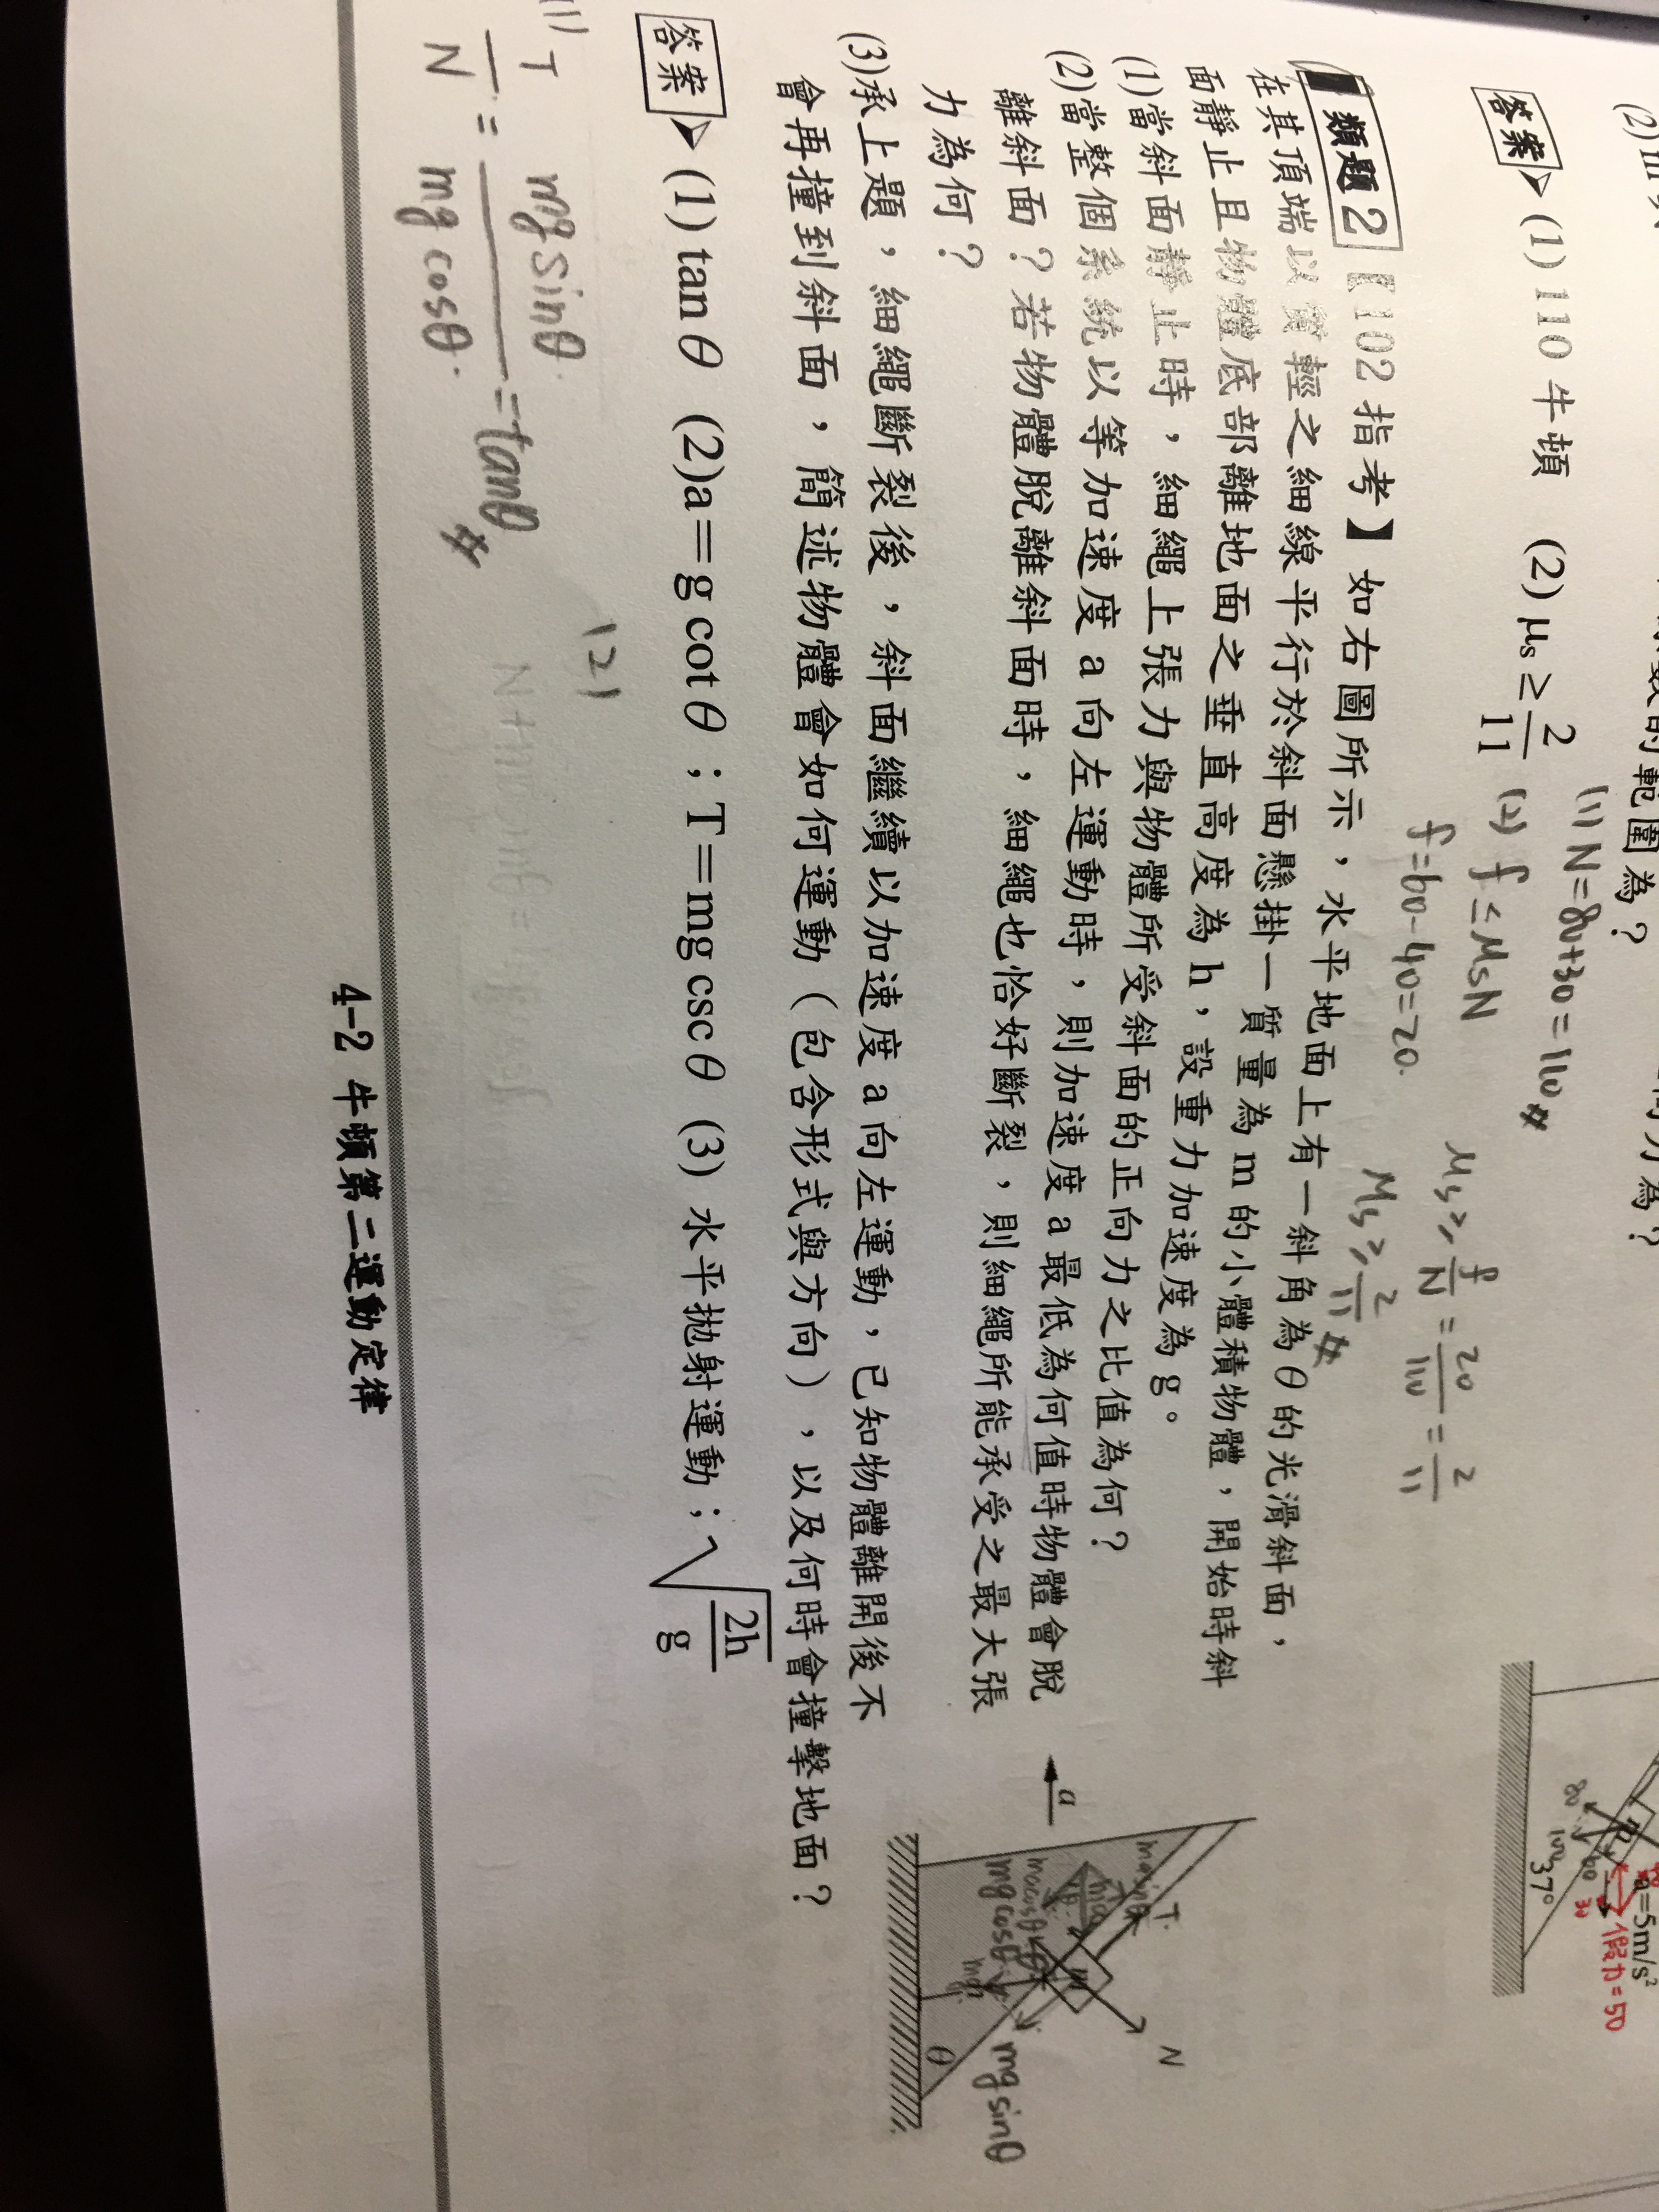 答案 (1) 110 牛頓 (2) μs ≥ 2/11
(1) N=80+30=110#
(2) f ≤ μsN
f=60-40=20.
μs ≥ f/N = 20/110 = 2/11
μs ≥ 2/11 #
37°
a=5m/s²
假想力=50
類題2 【102 指考】如右圖所示，水平地面上有一斜角為θ的光滑斜面，
在其頂端以質輕之細線平行於斜面懸掛一質量為 m 的小體積物體，開始時斜
面靜止且物體底部離地面之垂直高度為 h，設重力加速度為 g。
(1)當斜面靜止時，細繩上張力與物體所受斜面的正向力之比值為何？
(2)當整個系統以等加速度 a 向左運動時，則加速度 a 最低為何值時物體會脫
離斜面？若物體脫離斜面時，細繩也恰好斷裂，則細繩所能承受之最大張
力為何？
(3)承上題，細繩斷裂後，斜面繼續以加速度 a 向左運動，已知物體離開後不
會再撞到斜面，簡述物體會如何運動（包含形式與方向），以及何時會撞擊地面？
a
T
N
m
mg cosθ
mg sinθ
θ
答案 (1) tan θ (2)a＝g cot θ；T＝mg csc θ (3) 水平拋射運動；√(2h/g)
(1) T/N = mg sinθ/mg cosθ = tanθ #
(2)
4-2 牛頓第二運動定律